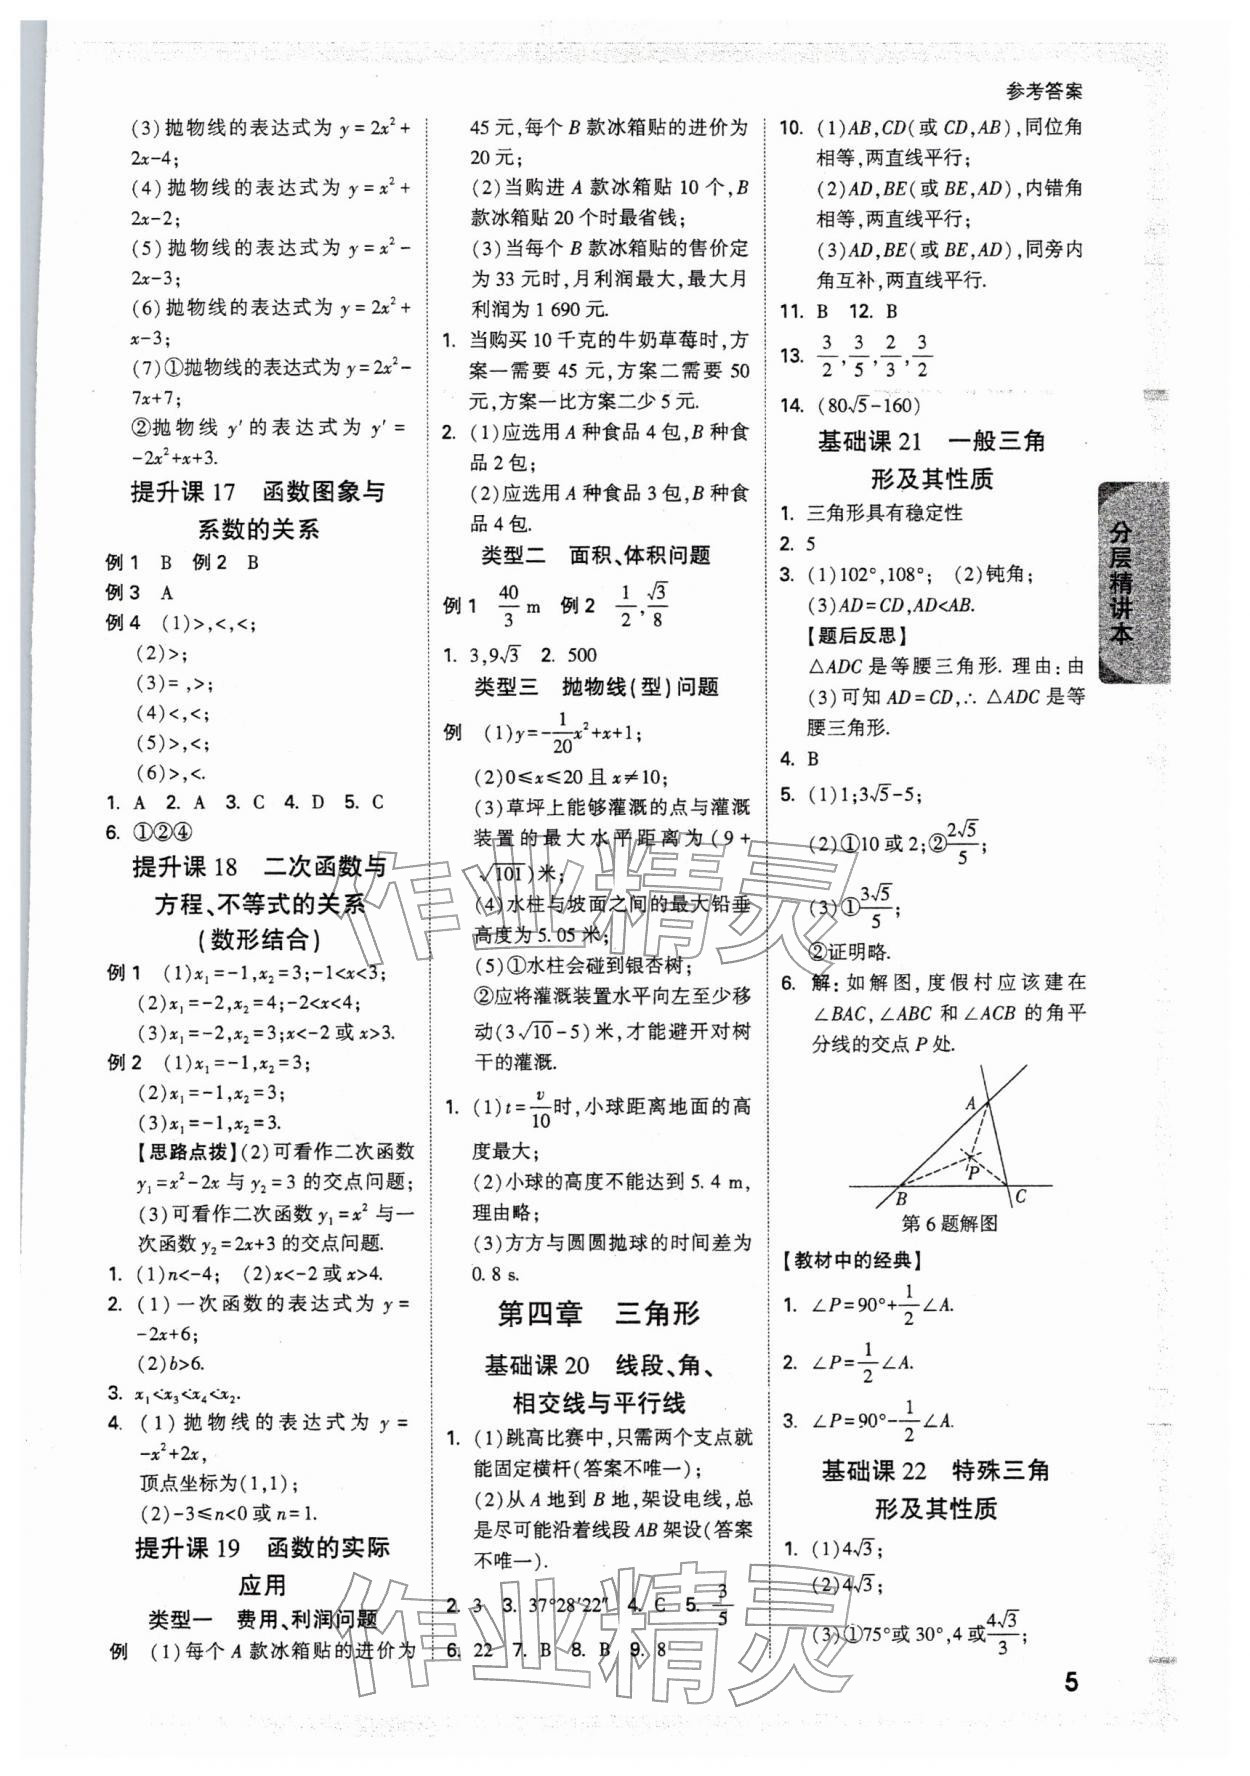 参考答案
(3)抛物线的表达式为 y=2x²+
2x-4;
(4)抛物线的表达式为 y=x²+
2x-2;
(5)抛物线的表达式为 y=x²-
2x-3;
(6)抛物线的表达式为 y=2x²+
x-3;
(7)①抛物线的表达式为 y=2x²-
7x+7;
②抛物线 y′的表达式为 y′=
-2x²+x+3.
提升课 17 函数图象与
系数的关系
例 1 B 例 2 B
例 3 A
例 4 (1)>,<,<;
(2)>;
(3)=,>;
(4)<,<;
(5)>,<;
(6)>,<.
1. A 2. A 3. C 4. D 5. C
6. ①②④
提升课 18 二次函数与
方程、不等式的关系
(数形结合)
例 1 (1)x₁=-1,x₂=3;-1<x<3;
(2)x₁=-2,x₂=4;-2<x<4;
(3)x₁=-2,x₂=3;x<-2 或 x>3.
例 2 (1)x₁=-1,x₂=3;
(2)x₁=-1,x₂=3;
(3)x₁=-1,x₂=3.
【思路点拨】(2)可看作二次函数
y₁=x²-2x 与 y₂=3 的交点问题;
(3)可看作二次函数 y₁=x² 与一
次函数 y₂=2x+3 的交点问题.
1. (1)n<-4; (2)x<-2 或 x>4.
2. (1)一次函数的表达式为 y=
-2x+6;
(2)b>6.
3. x₁<x₃<x₄<x₂.
4. (1)抛物线的表达式为 y=
-x²+2x,
顶点坐标为(1,1);
(2)-3≤n<0 或 n=1.
提升课 19 函数的实际
应用
类型一 费用、利润问题
例 (1)每个 A 款冰箱贴的进价为
45 元,每个 B 款冰箱贴的进价为
20 元;
(2)当购进 A 款冰箱贴 10 个,B
款冰箱贴 20 个时最省钱;
(3)当每个 B 款冰箱贴的售价定
为 33 元时,月利润最大,最大月
利润为 1 690 元.
1. 当购买 10 千克的牛奶草莓时,方
案一需要 45 元,方案二需要 50
元,方案一比方案二少 5 元.
2. (1)应选用 A 种食品 4 包,B 种食
品 2 包;
(2)应选用 A 种食品 3 包,B 种食
品 4 包.
类型二 面积、体积问题
例 1 40/3 m 例 2 1/2,√3/8
1. 3,9√3 2. 500
类型三 抛物线(型)问题
例 (1)y=-1/20x²+x+1;
(2)0≤x≤20 且 x≠10;
(3)草坪上能够灌溉的点与灌溉
装置的最大水平距离为(9+
√101)米;
(4)水柱与坡面之间的最大铅垂
高度为 5.05 米;
(5)①水柱会碰到银杏树;
②应将灌溉装置水平向左至少移
动(3√10-5)米,才能避开对树
干的灌溉.
1. (1)t=v/10时,小球距离地面的高
度最大;
(2)小球的高度不能达到 5.4 m,
理由略;
(3)方方与圆圆抛球的时间差为
0.8 s.
第四章 三角形
基础课 20 线段、角、
相交线与平行线
1. (1)跳高比赛中,只需两个支点就
能固定横杆(答案不唯一);
(2)从 A 地到 B 地,架设电线,总
是尽可能沿着线段 AB 架设(答案
不唯一).
2. 3 3. 37°28′22″ 4. C 5. 3/5
6. 22 7. B 8. B 9. 8
10. (1)AB,CD(或 CD,AB),同位角
相等,两直线平行;
(2)AD,BE(或 BE,AD),内错角
相等,两直线平行;
(3)AD,BE(或 BE,AD),同旁内
角互补,两直线平行.
11. B 12. B
13. 3/2,3/5,2/3,3/2
14. (80√5-160)
基础课 21 一般三角
形及其性质
1. 三角形具有稳定性
2. 5
3. (1)102°,108°; (2)钝角;
(3)AD=CD,AD<AB.
【题后反思】
△ADC 是等腰三角形. 理由:由
(3)可知 AD=CD,∴ △ADC 是等
腰三角形.
4. B
5. (1)1;3√5-5;
(2)①10 或 2;②2√5/5;
(3)①3√5/5;
②证明略.
6. 解:如解图,度假村应该建在
∠BAC,∠ABC 和 ∠ACB 的角平
分线的交点 P 处.
A
P
B
C
第 6 题解图
【教材中的经典】
1. ∠P=90°+1/2∠A.
2. ∠P=1/2∠A.
3. ∠P=90°-1/2∠A.
基础课 22 特殊三角
形及其性质
1. (1)4√3;
(2)4√3;
(3)①75°或 30°,4 或4√3/3;
分层精讲本
5
作业精灵
作业精灵